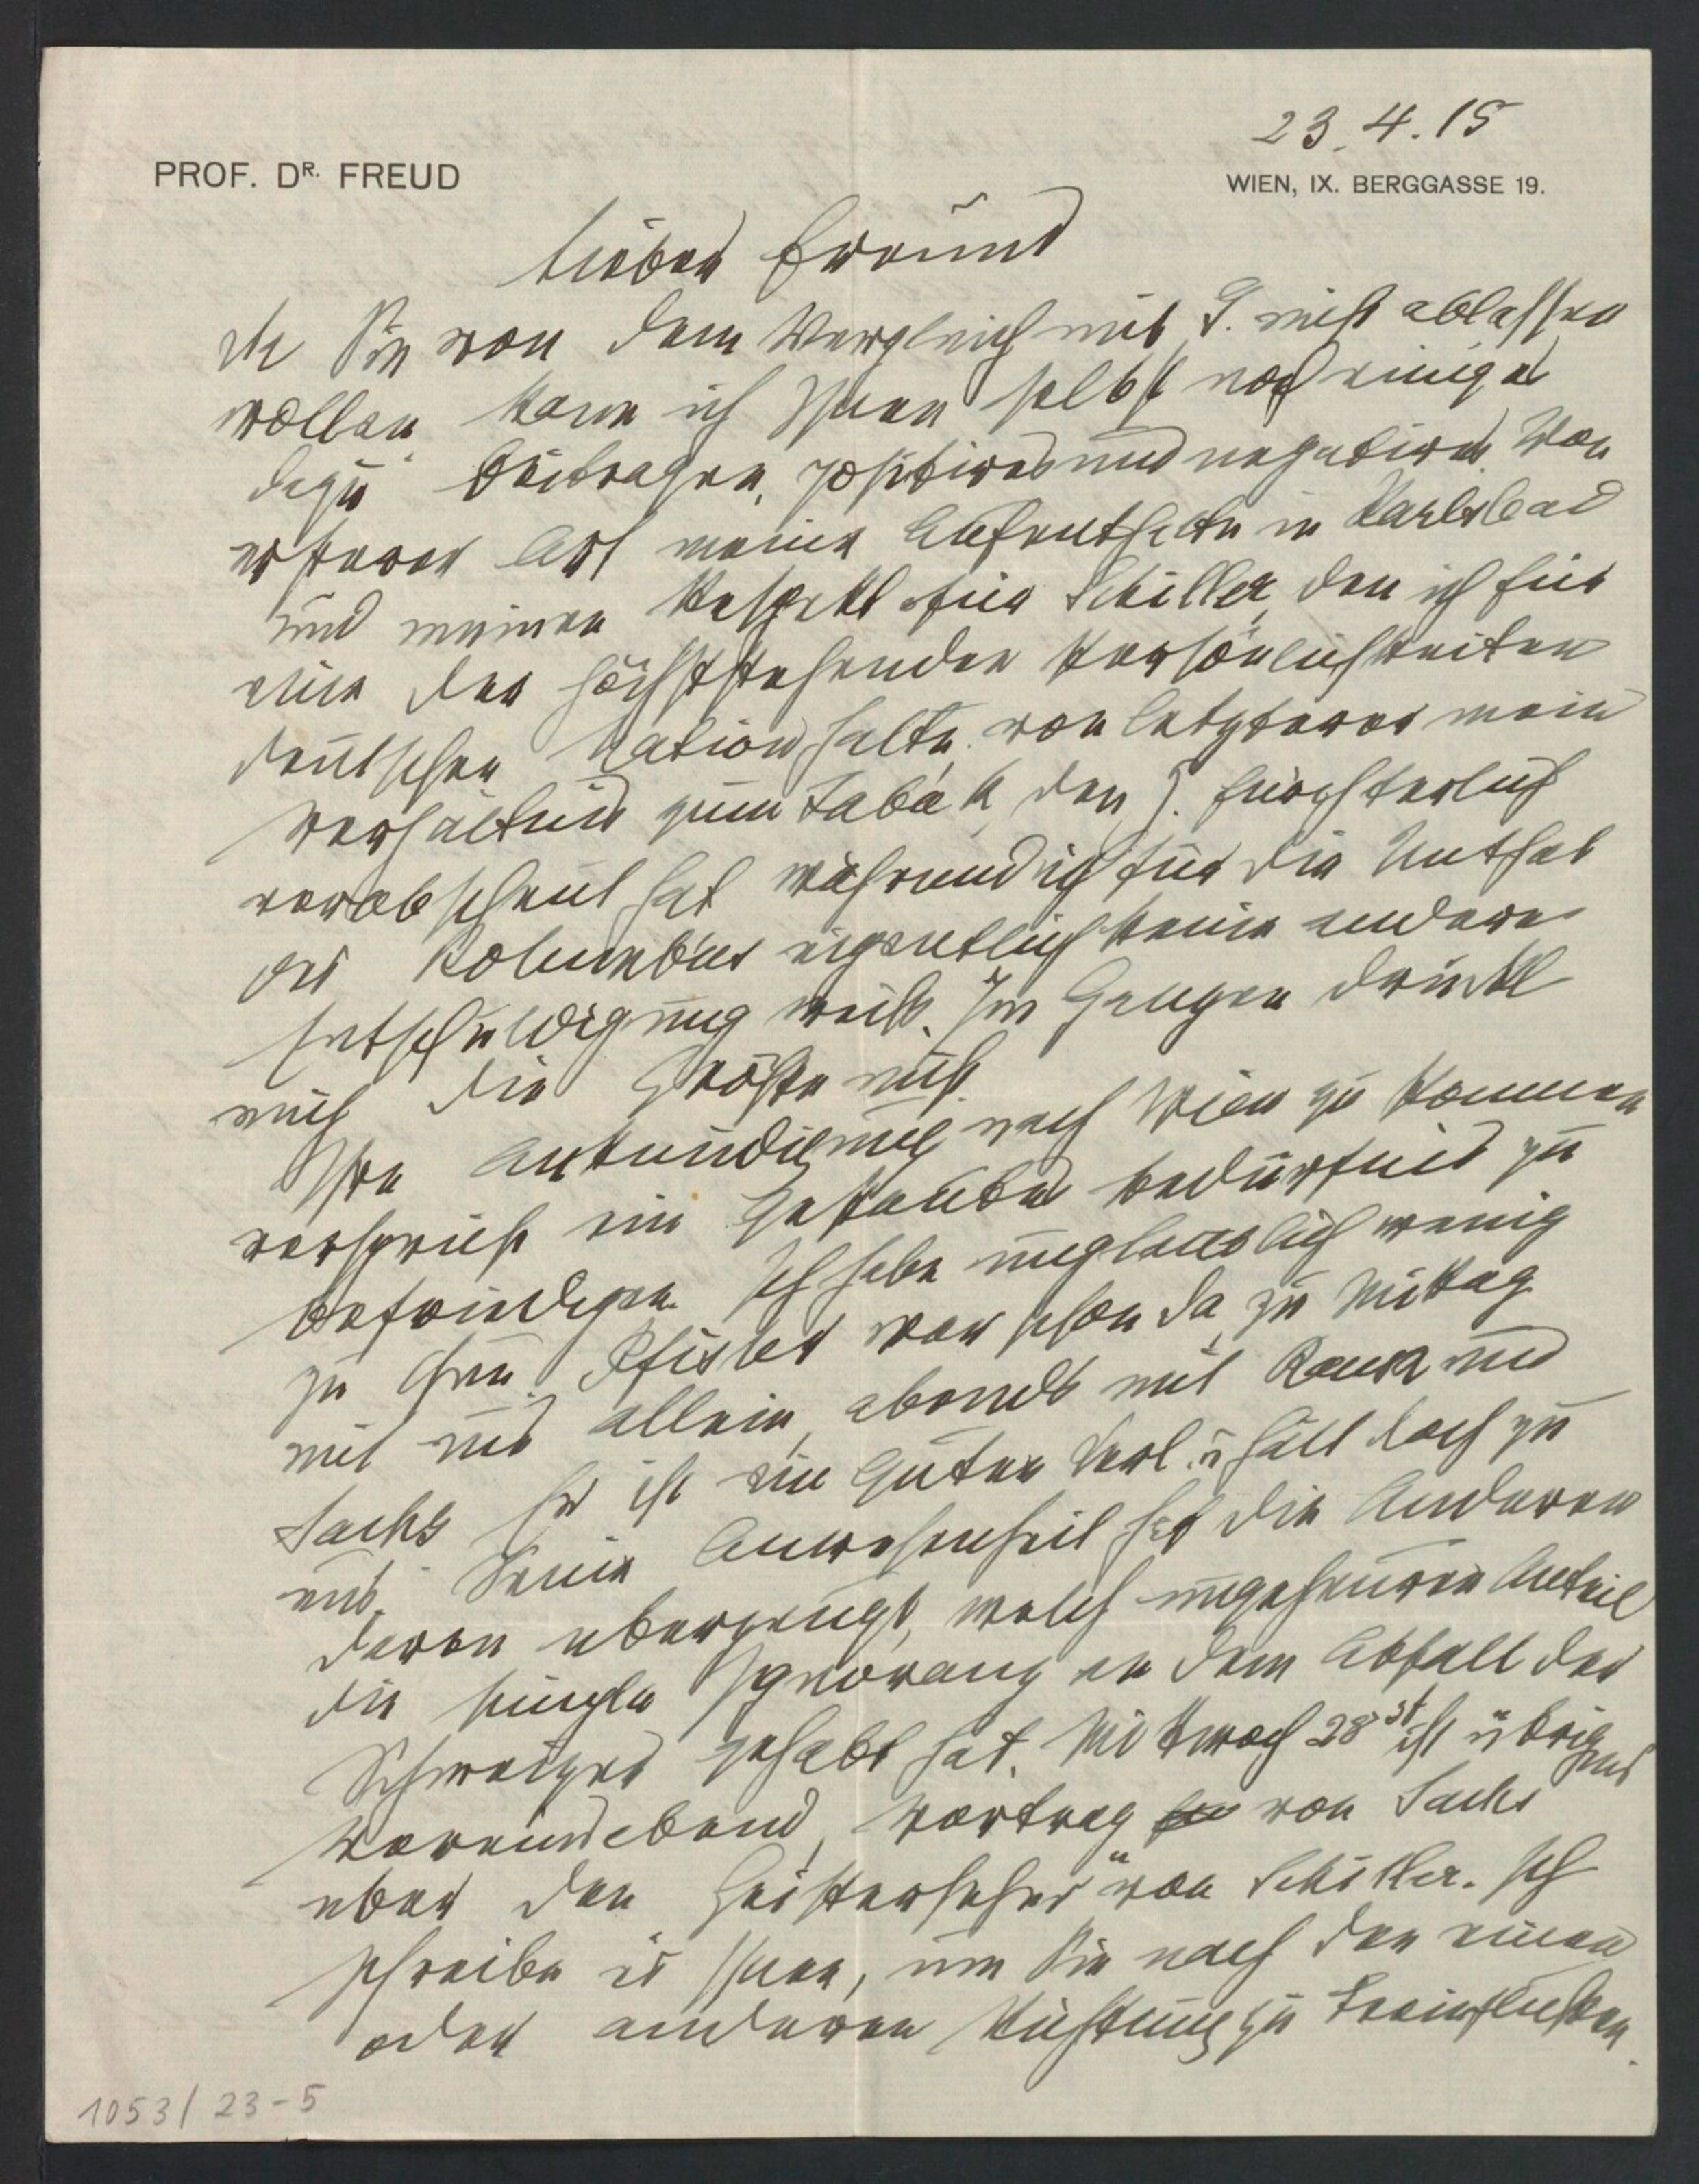 23.4.15
PROF. DR. FREUD
WIEN, IX. BERGGASSE 19.
Lieber Freund
Da Sie von dem Vergleich mit G. nicht ablassen
wollen, kann ich Ihnen selbst noch einiges
dazu beitragen, positives und negatives. Von
ersterer Art meine Aufenthalte in Karlsbad
und meinen Respekt für Schiller, den ich für
eine der höchststehenden Persönlichkeiten
deutscher Nation halte, von letzterer mein
Verhältnis zum Tabak, den G. fürchterlich
verabscheut hat, während ich für die Unthat
des Kolumbus eigentlich keine andere
Entschuldigung weiß. Im Ganzen drückt
mich die Größe nicht.
Ihre Ankündigung nach Wien zu kommen
verspricht ein Bedürfnis zu
befriedigen. Ich habe unglaublich wenig
zu thun. Pfister war schon da, zu Mittag
mit uns allein, abends mit Rank und
Sachs. Er ist ein guter Kerl u hält doch zu
uns. Seine Anwesenheit hat die Anderen
davon überzeugt, welch ungeheuren Anteil
die simple Ignoranz an dem Abfall der
Schweizer gehabt hat. Mittwoch 28st ist übrigens
Vereinsabend, Vortrag von Sachs
über den „Geisterseher“ von Schiller. Ich
schreibe es Ihnen, um Sie nach der einen
oder anderen Richtung zu beeinflußen.
1053/23-5